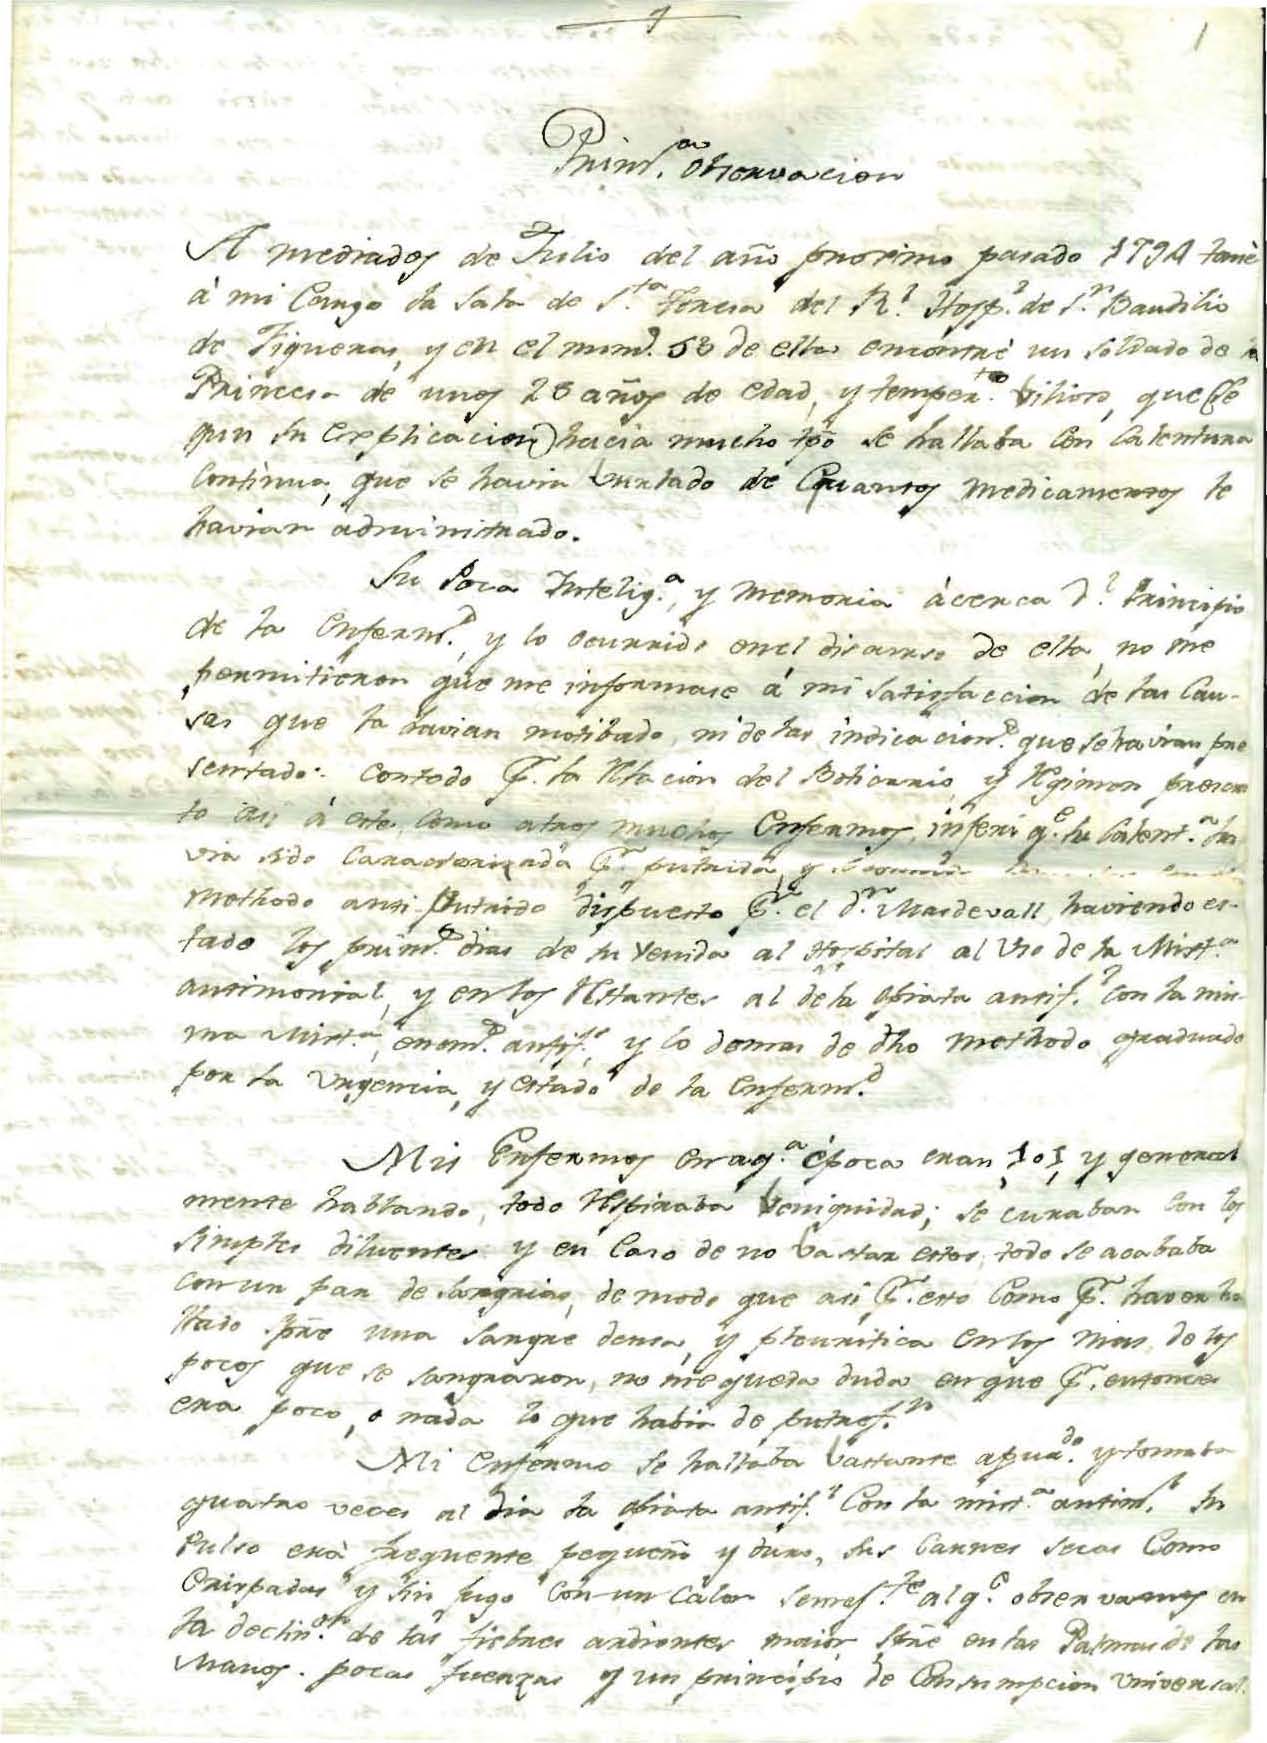 1
1
Prim.ª observacion
A mediados de Julio del año proximo pasado 1794 tomè
à mi Cargo la Sala de S.ta Teresa del R.l Hosp.l de S.n Baudilio
de Figueras, y en el num.o 58 de ella encontrè un soldado de la
Princesa de unos 28 años de edad, y temper.to vilioso, que (se
gun su explicacion) hacia mucho tpõ se hallaba con Calentura
Continua, que se havia burlado de Quantos medicamentos le
havian administrado.
Su Poca Intelig.ª, y memoria àcerca d.l Principio
de la Enferm.d, y lo ocurrido en el discurso de ella, no me
permitieron que me informase à mi satisfaccion de las Cau-
sas que la havian motibado, ni de las indicacion.s que se havian pre
sentado. Contodo P.r la Relacion del Boticario, y Regimen prescri
to asi à este, como atros muchos Enfermos, inferi q.e la Calent.ª ha
via sido Caracterizada P.r putrida, y
Methodo anti-Putrido dispuesto P.r el d.r Masdevall, haviendo es-
tado los prim.s dias de su Venida al Hospital al Uso de la Mist.ª
antimonial, y en los Restantes al de la Opiata antif.l con la mis-
ma Mist.ª, enem.s antif.s, y lo demas de dho methodo graduado
por la Urgencia, y estado de la Enferm.d
Mis Enfermos en aq.ª època eran 101, y general
mente hablando, todo Respiraba veniguidad; se curaban con los
simples diluentes y en Caso de no vastar estos, todo se acababa
con un par de sangrias, de modo que asi P.r esto Como P.r haver ha
llado spre una sangre densa, y pleuritica en los mas de los
pocos que se sangraron, no me queda duda en que P.r entonces
era poco, o nada lo que habia de putref.n
Mi Enfermo se hallaba vastante apura.do y tomaba
quatro veces al dia la Opiata antif.l Con la mist.ª antim.l Su
Pulso era frequente pequeño y duro, sus Carnes secas Como
Crispadas y sin jugo Con un Calor semej.te al q.e observamos en
la declin.on de las fiebres ardientes maior spre en las Palmas de las
Manos. pocas fuerzas y un principio de Consumpcion Universal.